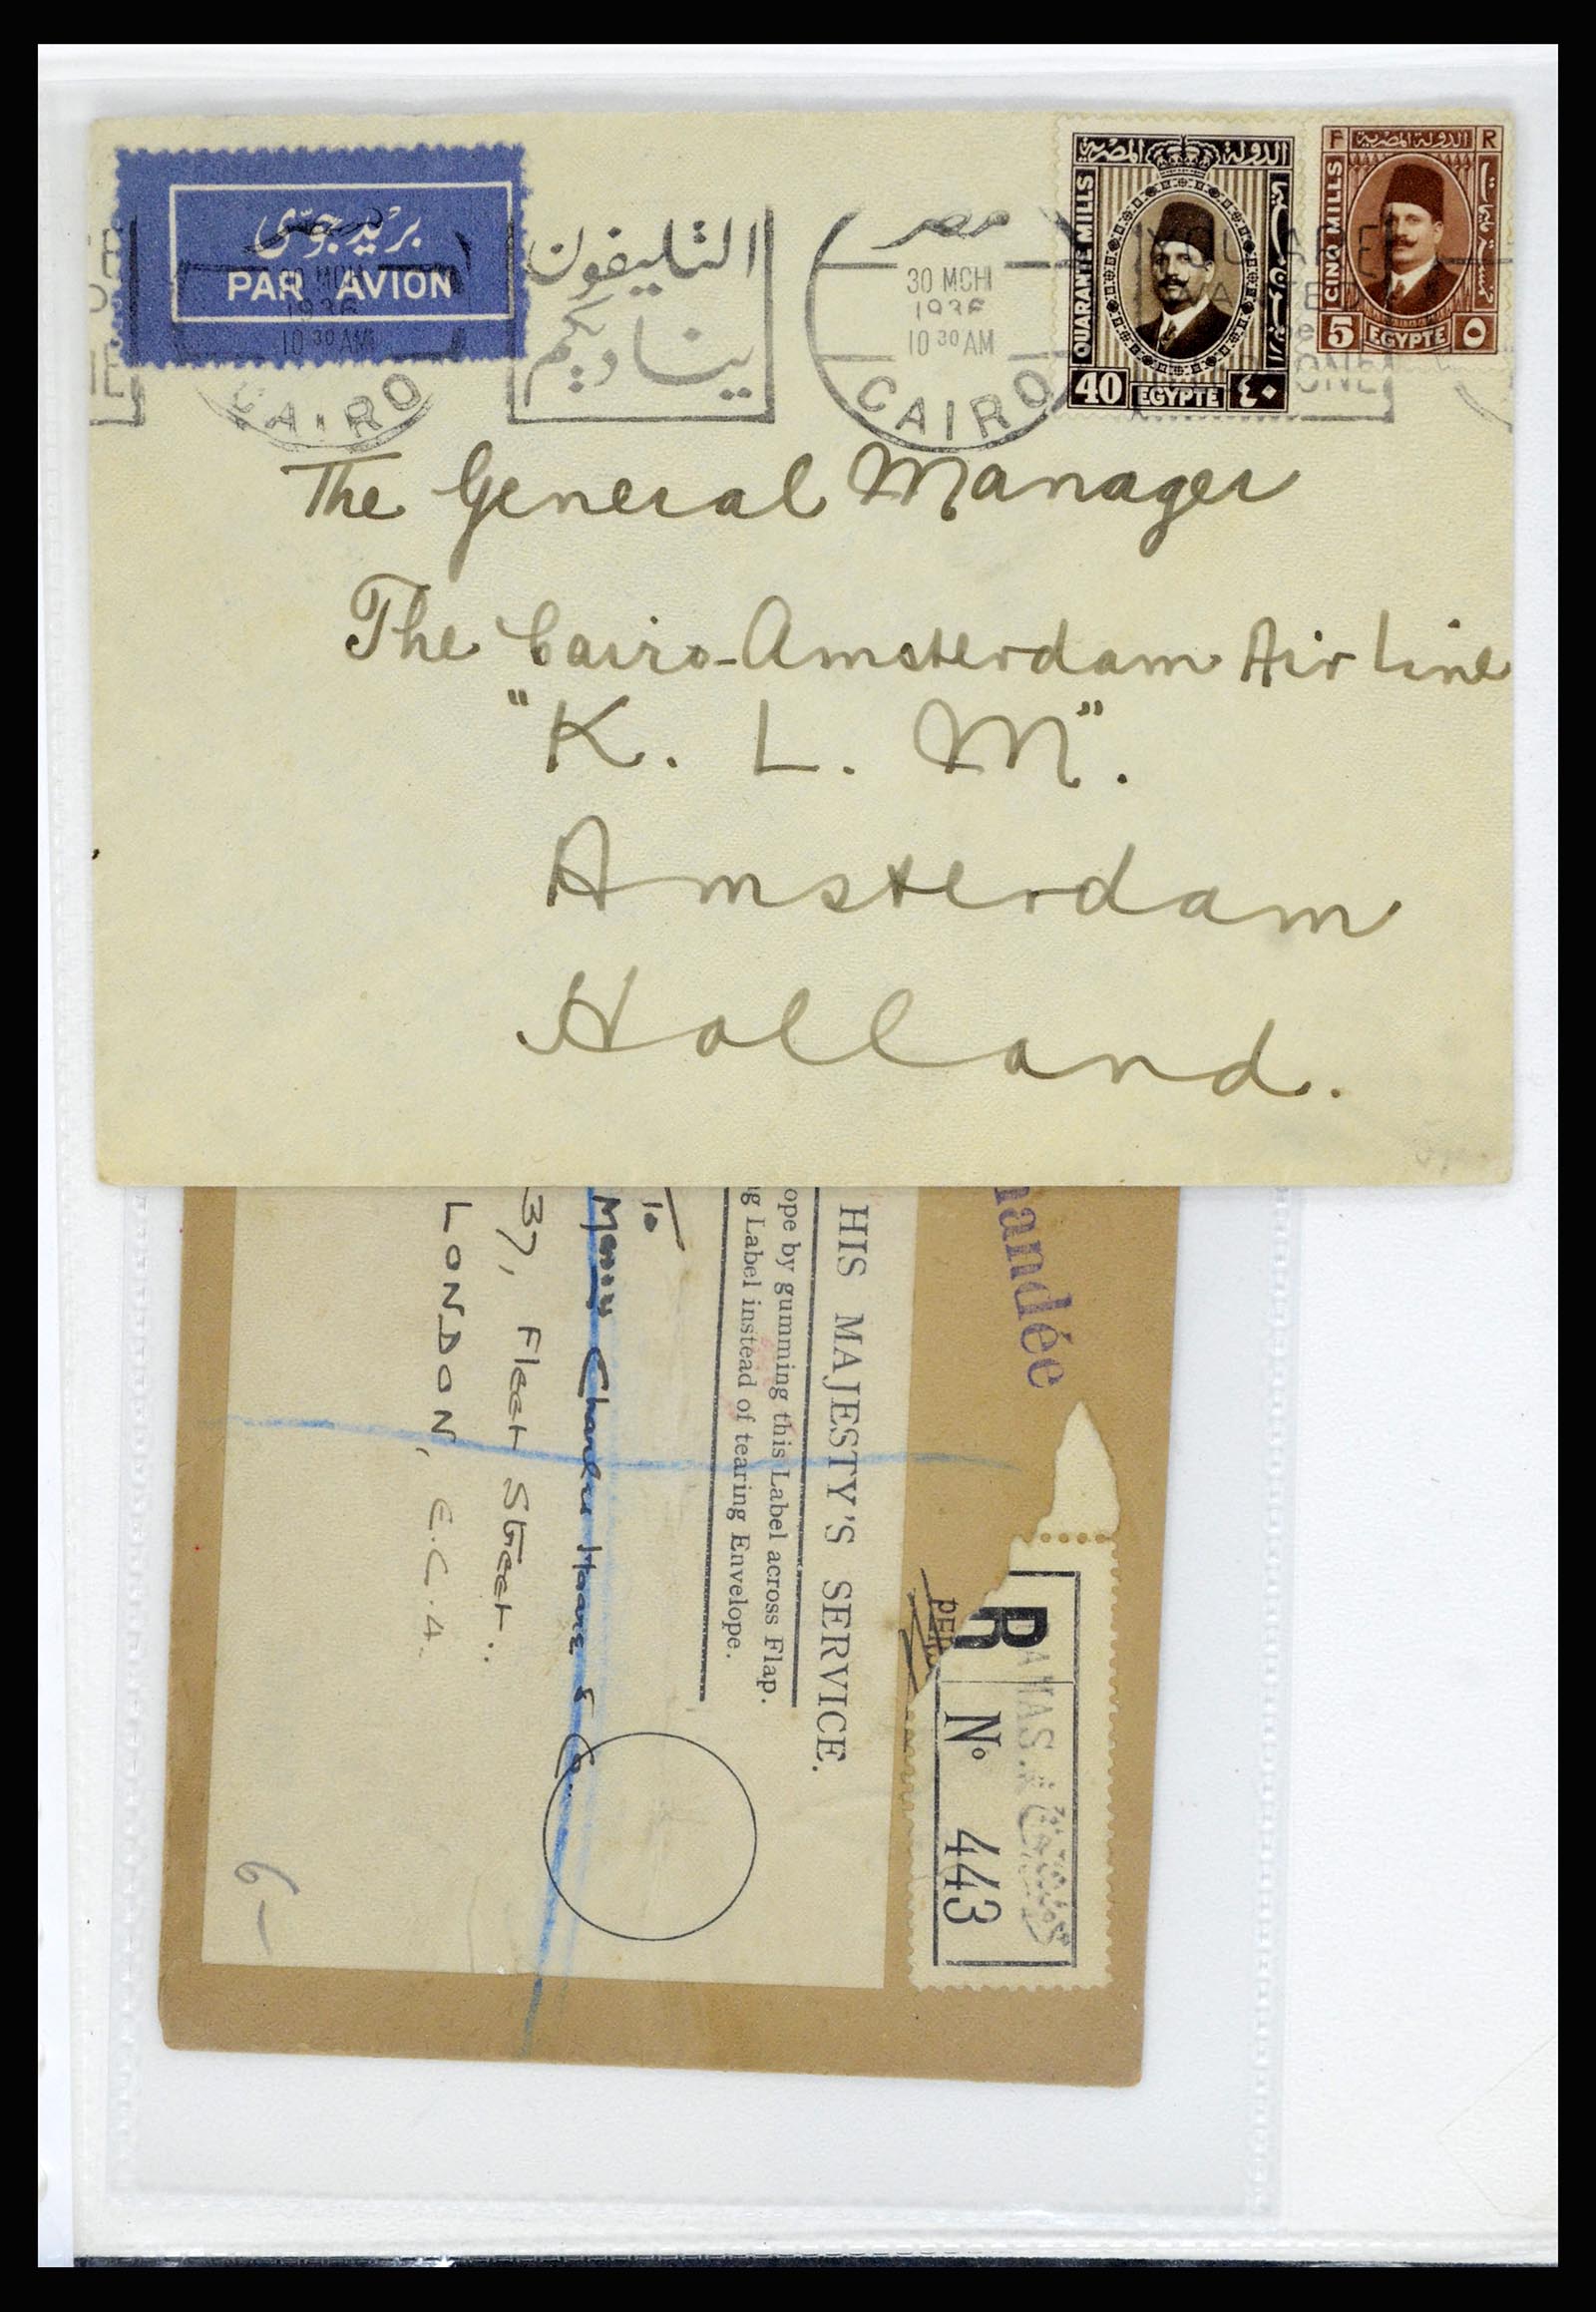 بريد جوّى
PAR AVION
1936
10 30 AM
CAIRO
التليفون
يناديكم
مصر
30 MCH
1936
10 30 AM
CAIRO
الدولة المصرية
QUARANTE MILLS
40 EGYPTE ٤٠
F الدولة المصرية R
CINQ MILLS
5 EGYPTE ٥
The General Manager
The Cairo-Amsterdam Air Line
"K. L. M".
Amsterdam
Holland.
mandée
HIS MAJESTY'S SERVICE.
ope by gumming this Label across Flap.
g Label instead of tearing Envelope.
To
37, Fleet Street..
LONDON, E.C.4.
R Nº 443
6-